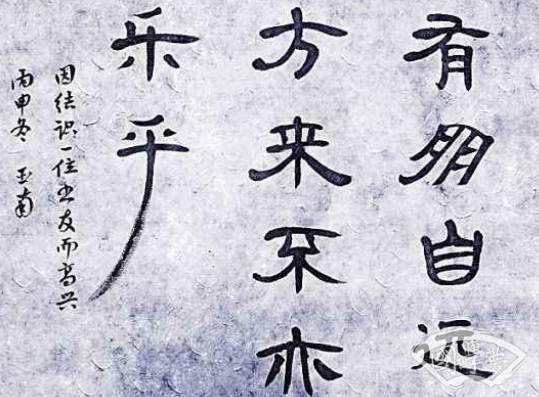 有朋自远
方来不亦
乐乎
因结识一位书友而高兴
丙申冬